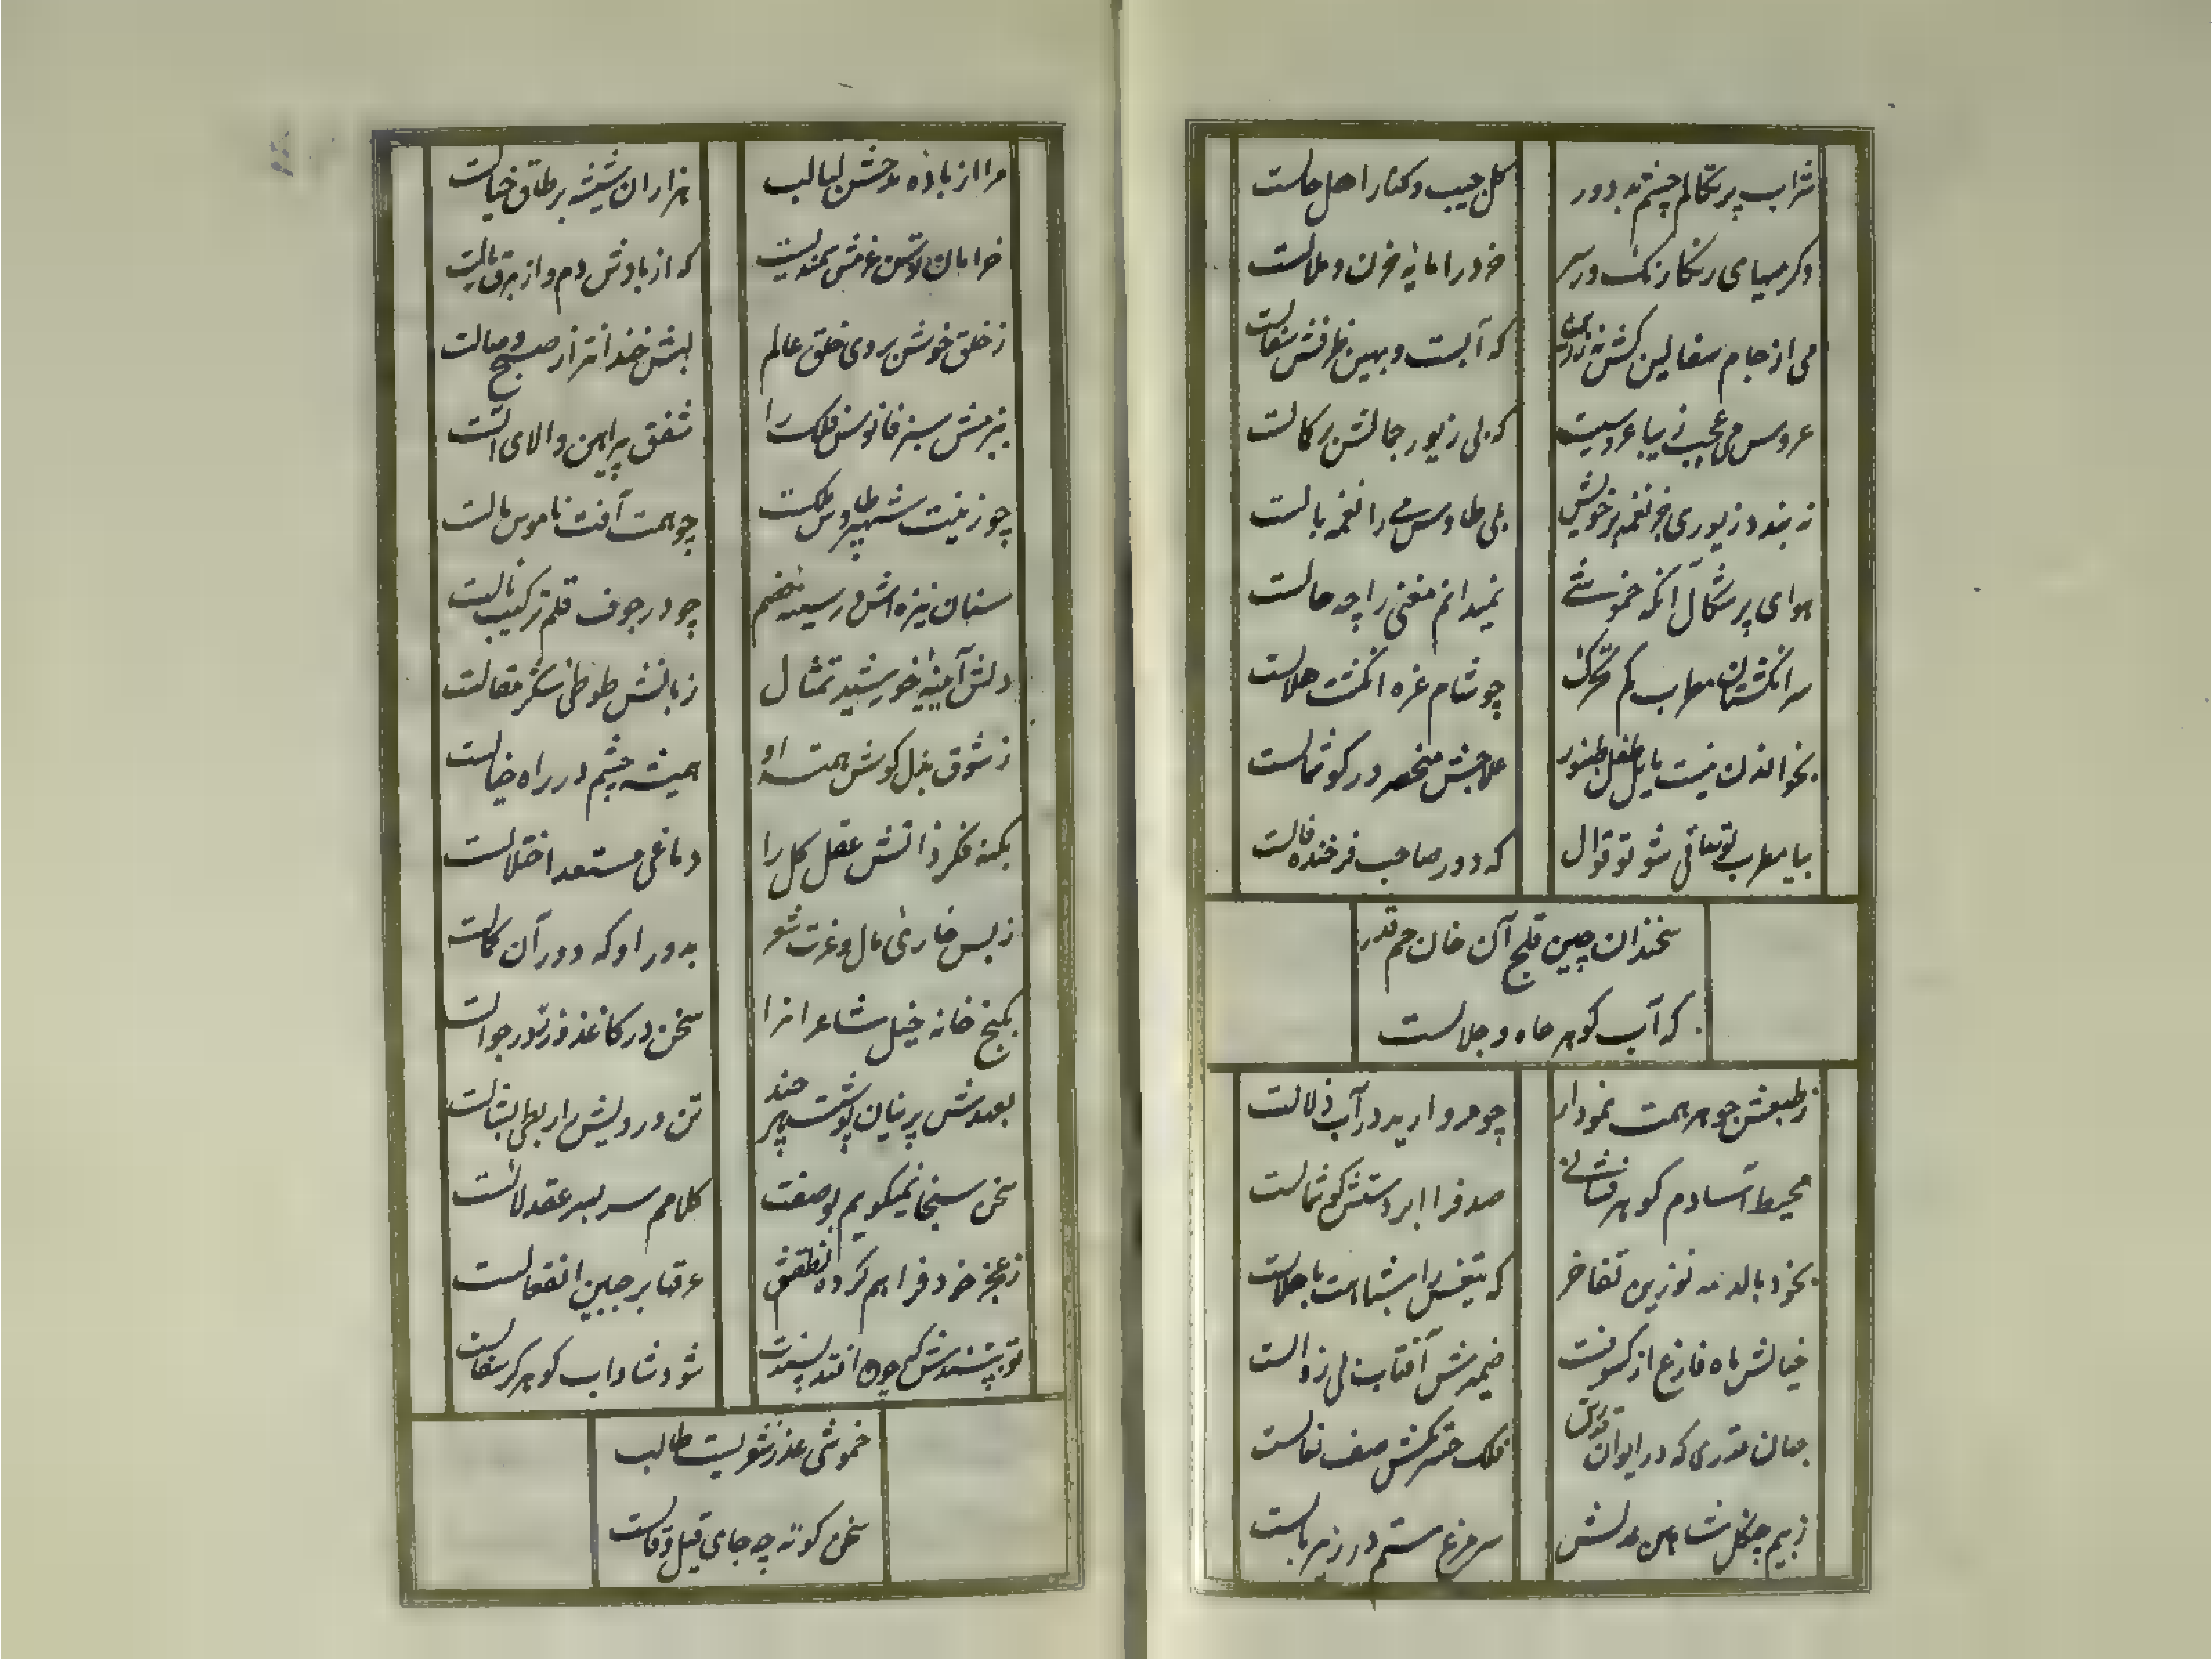 شراب پرتگالم چشم بد دور
گل جیب و کنار اهل حالست
وگر مهیای رنگارنگ در سر
خرد را مایهٔ حزن و ملالست
می از جام سفالین کش نه
که آبست و بهین ظرفش سفالست
عروس می عجب زیبا عروسیست
که بی زیور جمالش بر کمالست
نه بندد زیوری جز نغمه بر خویش
بلی طاوس می را نغمه بالست
هوای پرشگال آنگه خموشی
نمیدانم مغنی را چه حالست
سرانگشتان مطرب کم تحرک
چو شام غره انگشت هلالست
بخواندن نیست مایل طفل طنبور
علاجش منحصر در گوشمالست
بیا مطرب تو ساقی شو تو قوال
که دور صاحب فرخنده فالست
سخندان چین قلج آن خان جم قدر
که آب گوهر جاه و جلالست
ز طبعش جوهر همت نمودار
چو مروارید در آب زلالست
محیط آسا دم گوهر فشانی
صدف را ابر دستش گوشمالست
بخود بالد مه نو زین تفاخر
که تیغش را شباهت با هلالست
خیالش ماه فارغ از کسوفست
ضمیرش آفتاب بی زوالست
جهان قدری که در ایوان قدرش
فلک حسرت کش صف نعالست
ز بیم چنگل شاهین عدلش
سر مرغ ستم در زیر بالست
مرا از بادهٔ مدحش لبالب
هزاران شیشه بر طاق خیالست
خرامان توسن عزمش سمندیست
که از بادش دم و از برق یالست
ز خلق خوش بروی خلق عالم
لبش خندانتر از صبح وصالست
ببزمش سبز فانوس فلک را
شفق پیراهن والای آلست
چو زینت شهپر طاوس ملکست
چو همت آفت ناموس مالست
سنان نیزه اش در سینهٔ خصم
چو در جوف قلم ترکیب نالست
دلش آیینهٔ خورشید تمثال
زبانش طوطی شکر مقالست
ز شوق بذل گوش همت او
همیشه چشم در راه خیالست
بکنه فکر ذاتش عقل کل را
دماغی مستعد اختلالست
ز بس خارئ مال و عزت شعر
بدور او که دور آن کمالست
بکنج خانه خیل شاعرانرا
سخن در کاغذ و زر در جوالست
بعهدش پرنیان پوشست هر چند
تن درویش را ربطی بشالست
سخن سنجا نمیگویم بوصفت
کلامم سر بسر عقد لآلست
ز عجز خود فراهم کرده نطقش
عرقها بر جبین انفعالست
تو بپسندش که چون افتد پسندت
شود شاداب گوهر گر سفالست
خموشی عذر شویست طالب
سخن کوته چه جای قیل و قالست